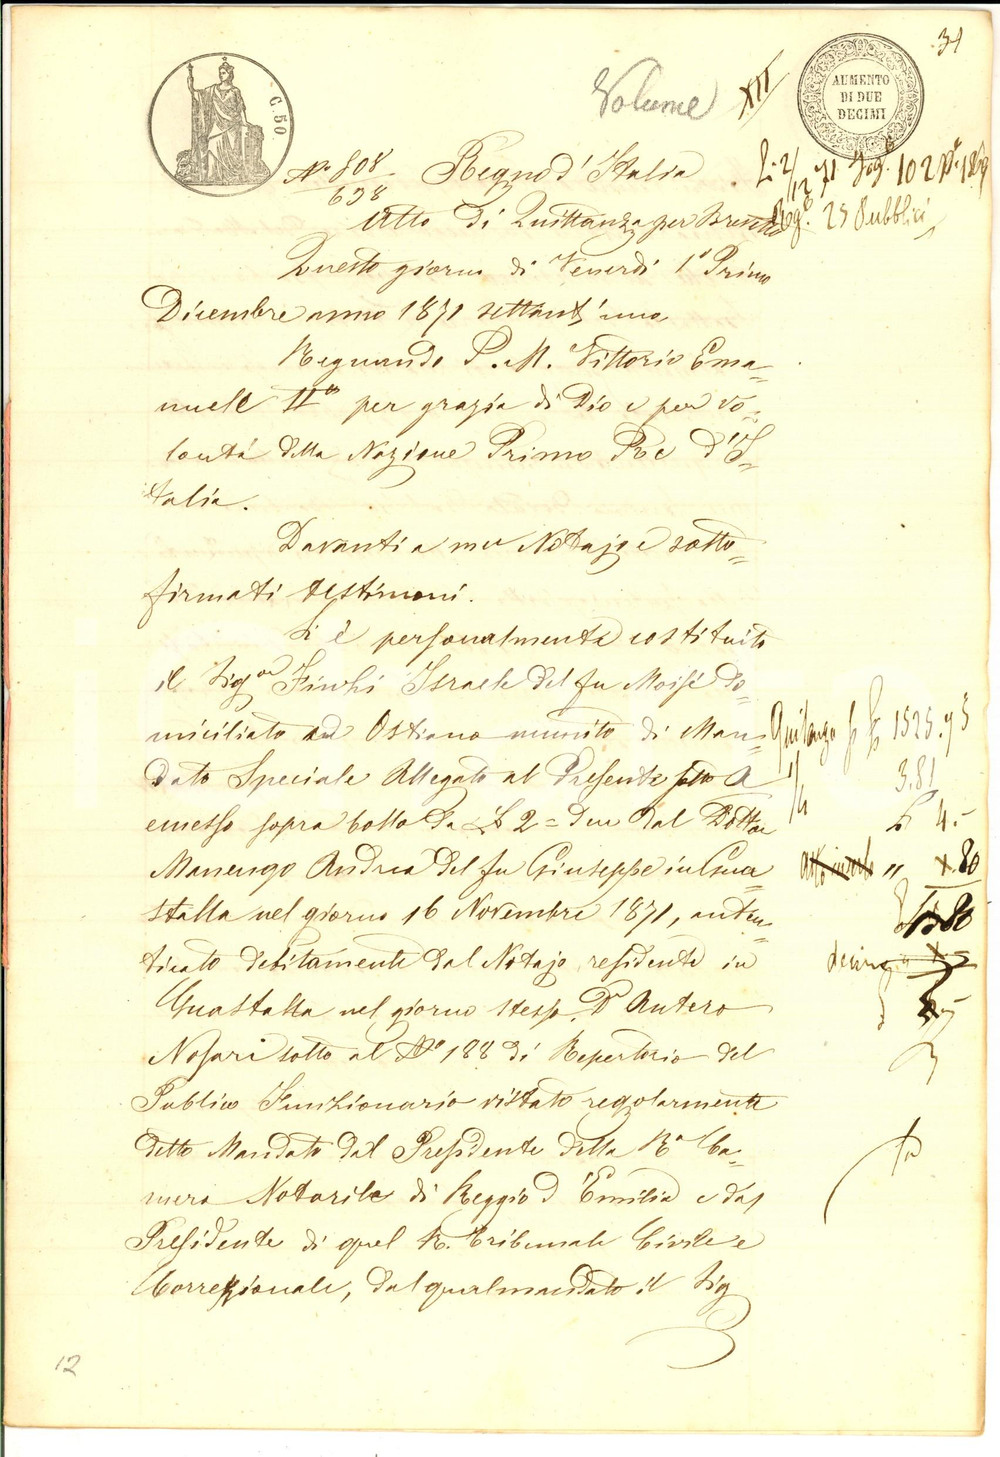 31
C. 50
Volume XII
AUMENTO
DI DUE
DECIMI
N° 808
638
Regno d'Italia
L. 2/12 71 102
25 Pubblici
Atto di Quittanza per
Questo giorno di Venerdì 1° Primo
Dicembre anno 1871 settant'uno
Regnando S. M. Vittorio Ema=
nuele II° per grazia di Dio e per vo=
lontà della Nazione Primo Re d'I=
talia.
Davanti a me Notajo e sotto=
firmati testimoni.
Si è personalmente costituito
il Sig.or Finzi Israele del fu Moisé do=
miciliato ad Ostiano munito di Man=
dato Speciale Allegato al Presente sotto A
emesso sopra bollo da L 2 = due dal Dottor
Marengo Andrea del fu Giuseppe in Gua=
stalla nel giorno 16 Novembre 1871, auten=
ticato debitamente dal Notajo residente in
Guastalla nel giorno stesso Dr Antero
Nosari sotto al N° 188 di Repertorio del
Publico Funzionario vistato regolarmente
detto Mandato dal Presidente della R.a Ca=
mera Notarile di Reggio d'Emilia e dal
Presidente di quel R. Tribunale Civile e
Correzionale, dal qual mandato il Sig
Quitanza p 1525.93
3.81
L 4.-
80
12